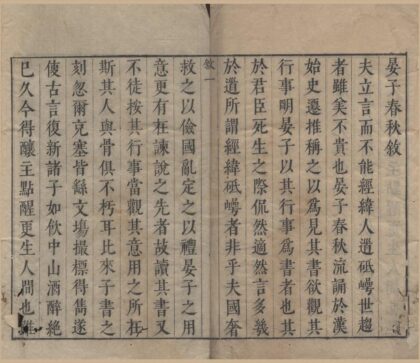 晏子春秋敘
夫立言而不能經緯人道砥礪世趨
者雖矣不貴也晏子春秋流誦於漢
始史遷推稱之以爲見其書欲觀其
行事明晏子以其行事爲書者也其
於君臣死生之際侃然適然言多幾
於道所謂經緯砥礪者非乎夫國奢
敘一
救之以儉國亂定之以禮晏子之用
意更有在諫說之先者故讀其書又
不徒按其行事當觀其意用之所在
斯其人與骨俱不朽耳比來子書之
刻忽爾克塞皆餘文塲撮標得雋遂
使古言復新諸子如飲中山酒醉絶
已久今得釀主點醒更生人間也雖